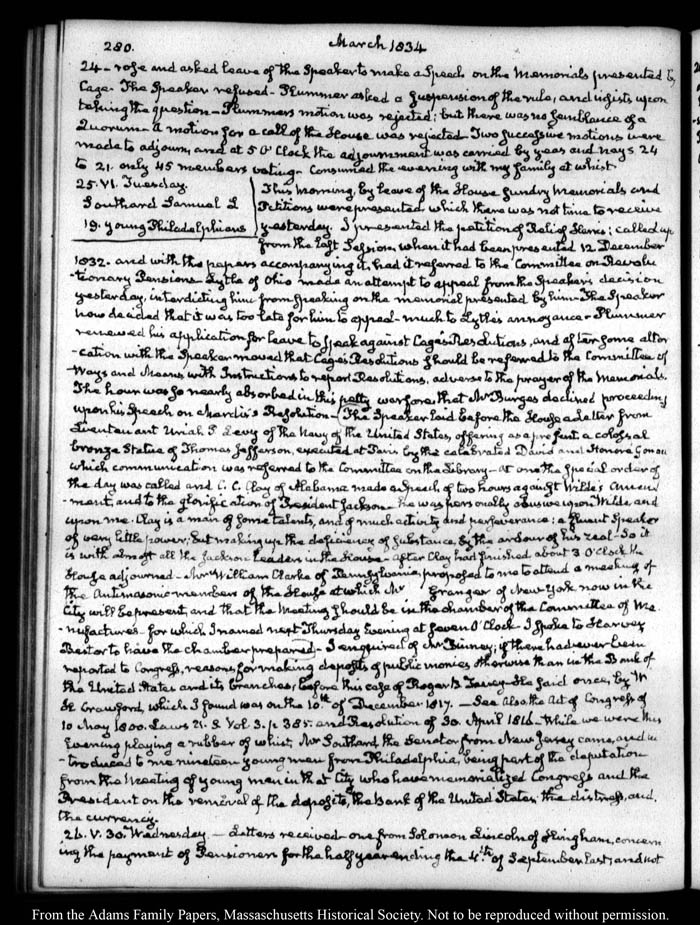 280.
March 1834
24 - rose and asked leave of the Speaker to make a Speech on the Memorials presented by
Cage. The Speaker refused - Plummer asked a suspension of the rule, and insists upon
taking the question - Plummer's motion was rejected; but there was no semblance of a
Quorum - A motion for a call of the House was rejected - Two successive motions were
made to adjourn, and at 5 O'Clock the adjournment was carried by yeas and nays 24
to 21. only 45 members voting - Consumed the evening with my family at whist.
25. VI. Tuesday.
Southard Samuel L
19. young Philadelphians
This morning, by leave of the House sundry Memorials and
Petitions were presented which there was not time to receive
yesterday. I presented the petition of Relief : called up
from the last Session, when it had been presented 12 December
1832. and with the papers accompanying it, had it referred to the Committee on Revolu
-tionary Pensions - Lytle of Ohio made an attempt to appeal from the Speaker's decision
yesterday, interdicting him from speaking on the memorial presented by him - The Speaker
now decided that it was too late for him to appeal - much to Lytle's annoyance - Plummer
renewed his application for leave to speak against Cage's Resolutions, and after some alter
-cation with the Speaker moved that Cage's Resolutions should be referred to the Committee of
Ways and Means, with Instructions to report Resolutions, adverse to the prayer of the Memorials.
The hour was so nearly absorbed in this petty warfare that Mr Burges declined proceeding
upon his Speech on Mardis's Resolution - The Speaker laid before the House a Letter from
Lieutenant Uriah P Levy of the Navy of the United States, offering as a present a colossal
bronze Statue of Thomas Jefferson, executed at Paris by the celebrated David and Honoré Gonon
which communication was referred to the Committee on the Library - At one the special order of
the day was called and C. C. Clay of Alabama made a Speech of two hours against Wilde's Amend
-ment, and to the glorification of President Jackson - he was personally abusive upon Wilde, and
upon me - Clay is a man of some talents, and of much activity and perseverance: a fluent Speaker
of very little power, but making up the deficiency of substance, by the ardour of his zeal - So it
is with almost all the Jackson Leaders in the House - After Clay had finished about 3 O'Clock the
House adjourned - Mr William Clarke of Pennsylvania, proposed to me to attend a meeting of
the Antimasonic members of the House at which Mr Granger of New York now in the
City will be present, and that the Meeting should be in the chamber of the Committee of Ma
-nufactures - for which I named next Thursday Evening at seven O'Clock - I spoke to Harvey
Bestor to have the chamber prepared - I enquired of Mr Binney, if there had ever been
reported to Congress, reasons for making deposits of public monies otherwise than in the Bank of
the United States and its branches, before this case of Roger B Taney - He said once, by W
H Crawford, which I found was on the 10th of December 1817. - See also the Act of Congress of
10 May 1800. Laws U. S Vol 3. p 385. and Resolution of 30. April 1816 - While we were this
Evening playing a rubber of whist, Mr Southard the Senator from New Jersey came, and in
-troduced to me nineteen young men from Philadelphia, being part of the deputation
from the Meeting of young men in that City who have memorialized Congress and the
President on the removal of the deposits, the Bank of the United States, the distress, and
the currency.
26. V. 30. Wednesday. - Letters received - one from Solomon Lincoln of Hingham, concern
ing the payment of Pensioners for the half year ending the 4th of September last, and not
From the Adams Family Papers, Massachusetts Historical Society. Not to be reproduced without permission.